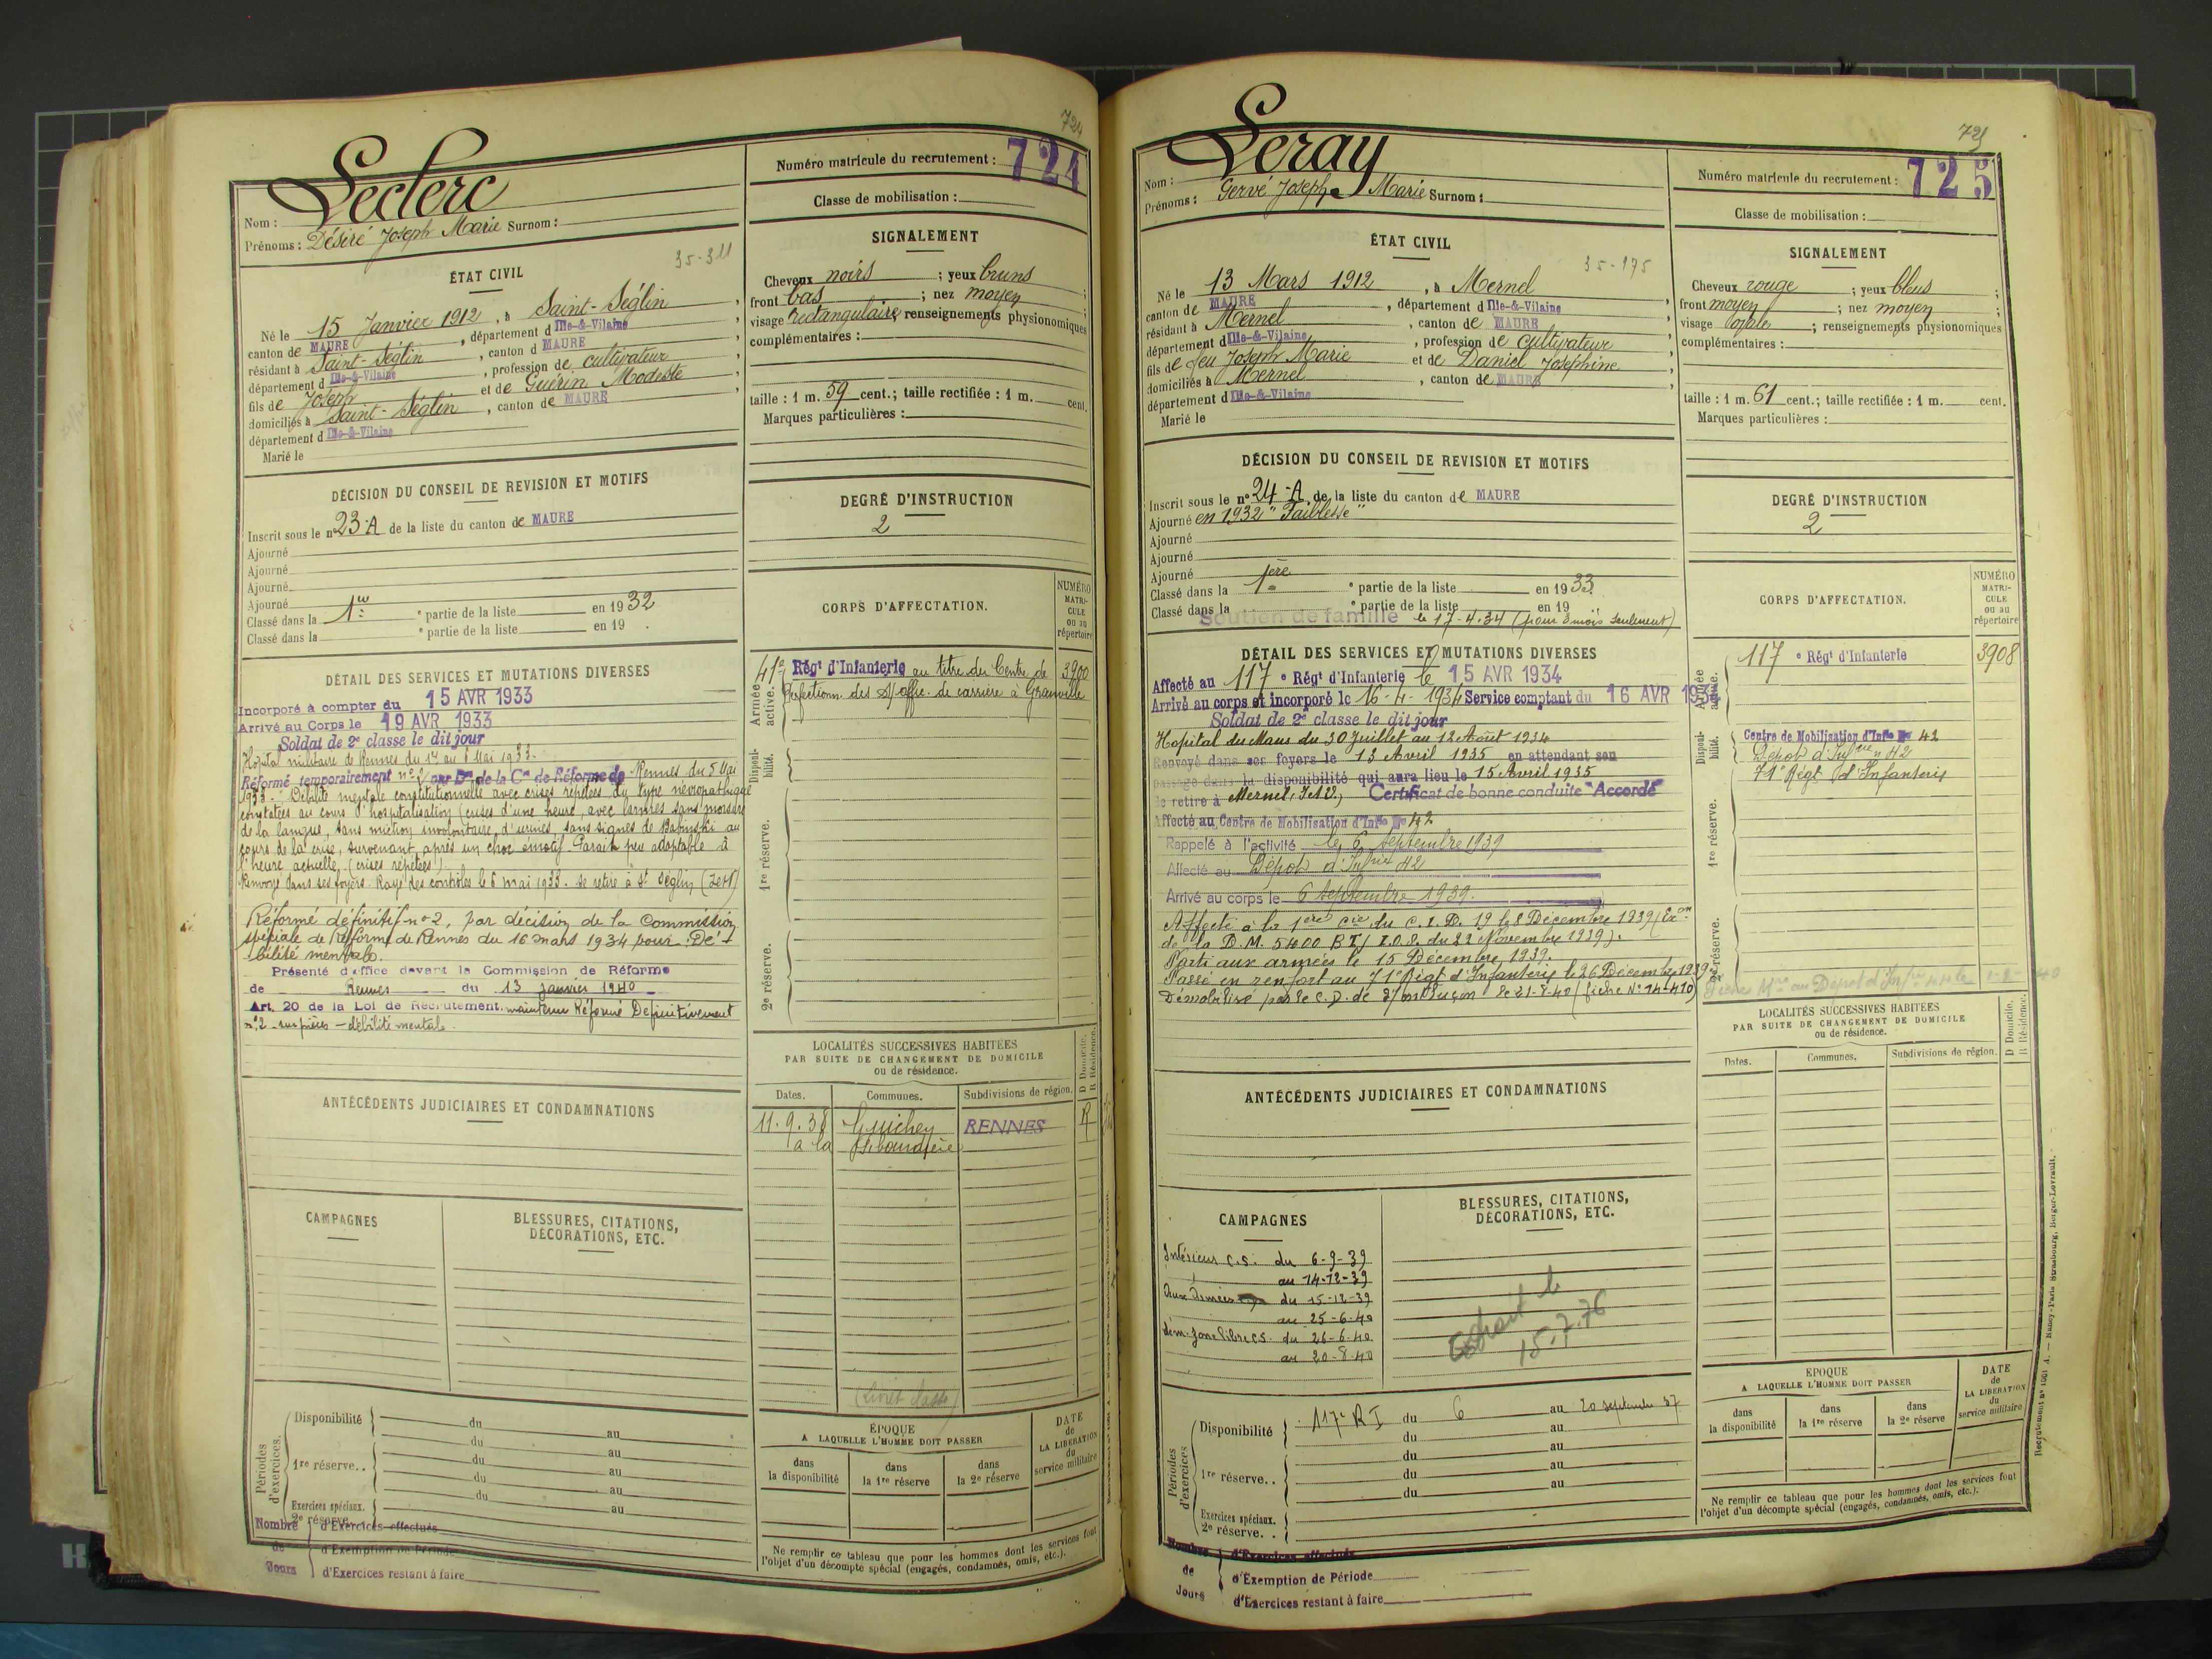 724
Leclerc
Nom :
Prénoms : Désiré Joseph Marie Surnom :
Numéro matricule du recrutement : 724
Classe de mobilisation :
35-311
ÉTAT CIVIL
Né le 15 Janvier 1912, à Saint-Séglin,
canton de MAURE, département d Ille-&-Vilaine,
résidant à Saint-Séglin, canton d MAURE,
département d Ille-&-Vilaine, profession de cultivateur,
fils de Joseph et de Guérin Modeste,
domiciliés à Saint-Séglin, canton de MAURE,
département d Ille-&-Vilaine
Marié le
SIGNALEMENT
Cheveux noirs ; yeux bruns ;
front bas ; nez moyen ;
visage rectangulaire, renseignements physionomiques
complémentaires :
taille : 1 m. 59 cent.; taille rectifiée : 1 m. cent.
Marques particulières :
DÉCISION DU CONSEIL DE REVISION ET MOTIFS
Inscrit sous le n° 23-A de la liste du canton de MAURE
Ajourné
Ajourné
Ajourné
Ajourné
Classé dans la 1re ° partie de la liste en 1932
Classé dans la ° partie de la liste en 19 .
DEGRÉ D'INSTRUCTION
2
DÉTAIL DES SERVICES ET MUTATIONS DIVERSES
Incorporé à compter du 15 AVR 1933
Arrivé au Corps le 19 AVR 1933
Soldat de 2e classe le dit jour
Hôpital militaire de Rennes du 1er au 6 Mai 1933.
Réformé temporairement n° 2 par Don de la Con de Réforme de Rennes du 5 Mai
1933. "Débilité mentale constitutionnelle avec crises répétées du type névropathique
constatées au cours d'hospitalisation (crises d'une heure, avec larmes sans morsure
de la langue, sans miction involontaire d'urines, sans signes de Babinski au
cours de la crise, survenant après un choc émotif. Paraît peu adaptable à
l'heure actuelle. (crises répétées)
Renvoyé dans ses foyers. Rayé des contrôles le 6 mai 1933. Se retire à St Séglin
Réformé définitif n° 2, par décision de la Commission
spéciale de Réforme de Rennes du 16 mars 1934 pour : Dé-
bilité mentale.
Présenté d'office devant la Commission de Réforme
de Rennes du 13 janvier 1940
Art. 20 de la Loi de Recrutement. maintenu Réformé Définitivement
n° 2 sur pièces - débilité mentale.
CORPS D'AFFECTATION.
NUMÉRO
MATRI-
CULE
ou au
répertoire
Armée active.
41e Régt d'Infanterie au titre du Centre de 3900
Perfectionn. des S/offic. de carrière à Granville
Disponi-
bilité.
1re réserve.
2e réserve.
ANTÉCÉDENTS JUDICIAIRES ET CONDAMNATIONS
LOCALITÉS SUCCESSIVES HABITÉES
PAR SUITE DE CHANGEMENT DE DOMICILE
ou de résidence.
D Domicile.
R Résidence.
Dates.
Communes.
Subdivisions de région.
11.9.38 Guichen RENNES R
à la
CAMPAGNES
BLESSURES, CITATIONS,
DÉCORATIONS, ETC.
Périodes
d'exercices.
Disponibilité du au
du au
1re réserve.. du au
du au
du au
Exercices spéciaux.
2e réserve.
Nombre de Jours
d'Exercices effectués
d'Exemption de Période
d'Exercices restant à faire
ÉPOQUE
A LAQUELLE L'HOMME DOIT PASSER
dans
la disponibilité
dans
la 1re réserve
dans
la 2e réserve
DATE
de
LA LIBÉRATION
du
service militaire
Ne remplir ce tableau que pour les hommes dont les services font
l'objet d'un décompte spécial (engagés, condamnés, omis, etc.).
725
Leray
Nom :
Prénoms : Gervé Joseph Marie Surnom :
Numéro matricule du recrutement : 725
Classe de mobilisation :
35-175
ÉTAT CIVIL
Né le 13 Mars 1912, à Mernel,
canton de MAURE, département d Ille-&-Vilaine,
résidant à Mernel, canton de MAURE,
département d Ille-&-Vilaine, profession de cultivateur,
fils de feu Joseph Marie et de Daniel Joséphine,
domiciliés à Mernel, canton de MAURE,
département d Ille-&-Vilaine
Marié le
SIGNALEMENT
Cheveux rouge ; yeux bleus ;
front moyen ; nez moyen ;
visage ovale ; renseignements physionomiques
complémentaires :
taille : 1 m. 61 cent.; taille rectifiée : 1 m. cent.
Marques particulières :
DÉCISION DU CONSEIL DE REVISION ET MOTIFS
Inscrit sous le n° 24-A de la liste du canton de MAURE
Ajourné en 1932 "Faiblesse"
Ajourné
Ajourné
Ajourné
Classé dans la 1ère ° partie de la liste en 1933.
Classé dans la ° partie de la liste en 19
Soutien de famille le 17-4-34 (pour 3 mois seulement)
DEGRÉ D'INSTRUCTION
2
DÉTAIL DES SERVICES ET MUTATIONS DIVERSES
Affecté au 117 ° Régt d'Infanterie le 15 AVR 1934
Arrivé au corps et incorporé le 16-4-1934 Service comptant du 16 AVR 1934
Soldat de 2e classe le dit jour
Hopital du Mans du 30 Juillet au 12 Août 1934
Renvoyé dans ses foyers le 13 Avril 1935 en attendant son
passage dans la disponibilité qui aura lieu le 15 Avril 1935
Se retire à Mernel, I et V., Certificat de bonne conduite "Accordé"
Affecté au Centre de Mobilisation d'Infie No 42
Rappelé à l'activité le 6 Septembre 1939
Affecté au Dépot d'Infrie 42
Arrivé au corps le 6 Septembre 1939.
Affecté à la 1ère Cie du C.I.D. 19 le 8 Décembre 1939 (Exon
de la D.M. 5400 BT/ du 22 Novembre 1939).
Parti aux armées le 15 Décembre 1939.
Passé en renfort au 71e Régt d'Infanterie le 26 Décembre 1939
Démobilisé par le C.D. de Montluçon le 21-8-40 (fiche No 14-410)
CORPS D'AFFECTATION.
NUMÉRO
MATRI-
CULE
ou au
répertoire
Armée active.
117 ° Régt d'Infanterie 3908
Disponi-
bilité.
Centre de Mobilisation d'Infie No 42
Dépot d'Infrie n° 42
71e Régt d'Infanterie
1re réserve.
2e réserve.
ANTÉCÉDENTS JUDICIAIRES ET CONDAMNATIONS
LOCALITÉS SUCCESSIVES HABITÉES
PAR SUITE DE CHANGEMENT DE DOMICILE
ou de résidence.
D Domicile.
R Résidence.
Dates.
Communes.
Subdivisions de région.
CAMPAGNES
Intérieur C.S. du 6-9-39
au 14-12-39
Aux Armées du 15-12-39
au 25-6-40
dém. zone libre C.S. du 26-6-40
au 20-8-40
BLESSURES, CITATIONS,
DÉCORATIONS, ETC.
Extrait le
15.7.76
Périodes
d'exercices
Disponibilité 117e RI du 6 au 20 septembre 37
du au
du au
1re réserve.. du au
du au
Exercices spéciaux.
2e réserve. .
Nombre de Jours
d'Exercices effectués
d'Exemption de Période
d'Exercices restant à faire
ÉPOQUE
A LAQUELLE L'HOMME DOIT PASSER
dans
la disponibilité
dans
la 1re réserve
dans
la 2e réserve
DATE
de
LA LIBÉRATION
du
service militaire
Ne remplir ce tableau que pour les hommes dont les services font
l'objet d'un décompte spécial (engagés, condamnés, omis, etc.).
Recrutement N° 1501 A. — Nancy-Paris Strasbourg, Berger-Levrault.